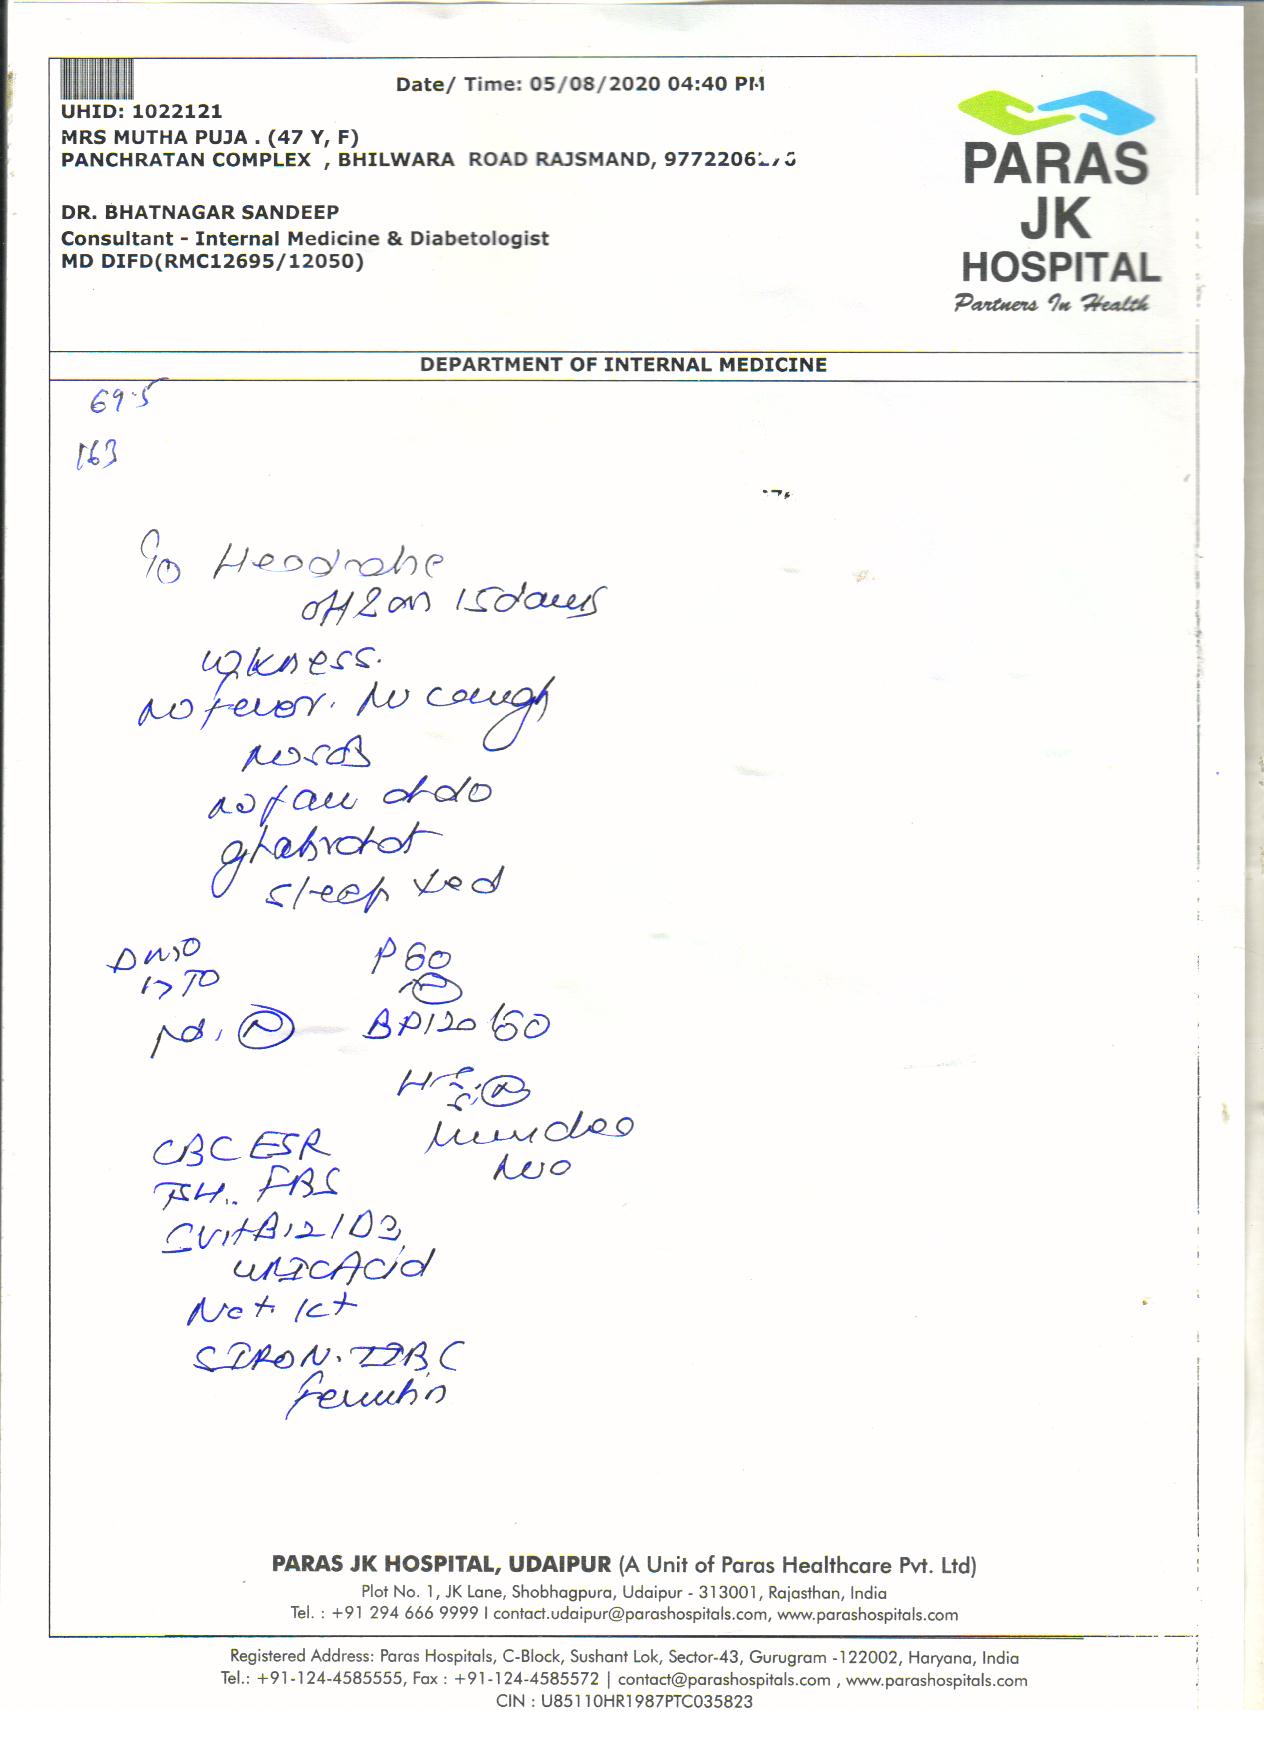 Date/ Time: 05/08/2020 04:40 PM
UHID: 1022121
MRS MUTHA PUJA . (47 Y, F)
PANCHRATAN COMPLEX , BHILWARA ROAD RAJSMAND,
DR. BHATNAGAR SANDEEP
Consultant - Internal Medicine & Diabetologist
MD DIFD(RMC12695/12050)
PARAS
JK
HOSPITAL
Partners In Health
DEPARTMENT OF INTERNAL MEDICINE
69.5
163
Headache
off & on 15 days
wkness.
no fever. No cough
no SOB
sleep
P 60
BP 120/60
CBC ESR
TSH.. FBS
S Vit B12/D3
Uric Acid
Na+ K+
S IRON. TIBC
ferritin
PARAS JK HOSPITAL, UDAIPUR (A Unit of Paras Healthcare Pvt. Ltd)
Plot No. 1, JK Lane, Shobhagpura, Udaipur - 313001, Rajasthan, India
Tel. : +91 294 666 9999 I contact.udaipur@parashospitals.com, www.parashospitals.com
Registered Address: Paras Hospitals, C-Block, Sushant Lok, Sector-43, Gurugram -122002, Haryana, India
Tel.: +91-124-4585555, Fax : +91-124-4585572 | contact@parashospitals.com , www.parashospitals.com
CIN : U85110HR1987PTC035823